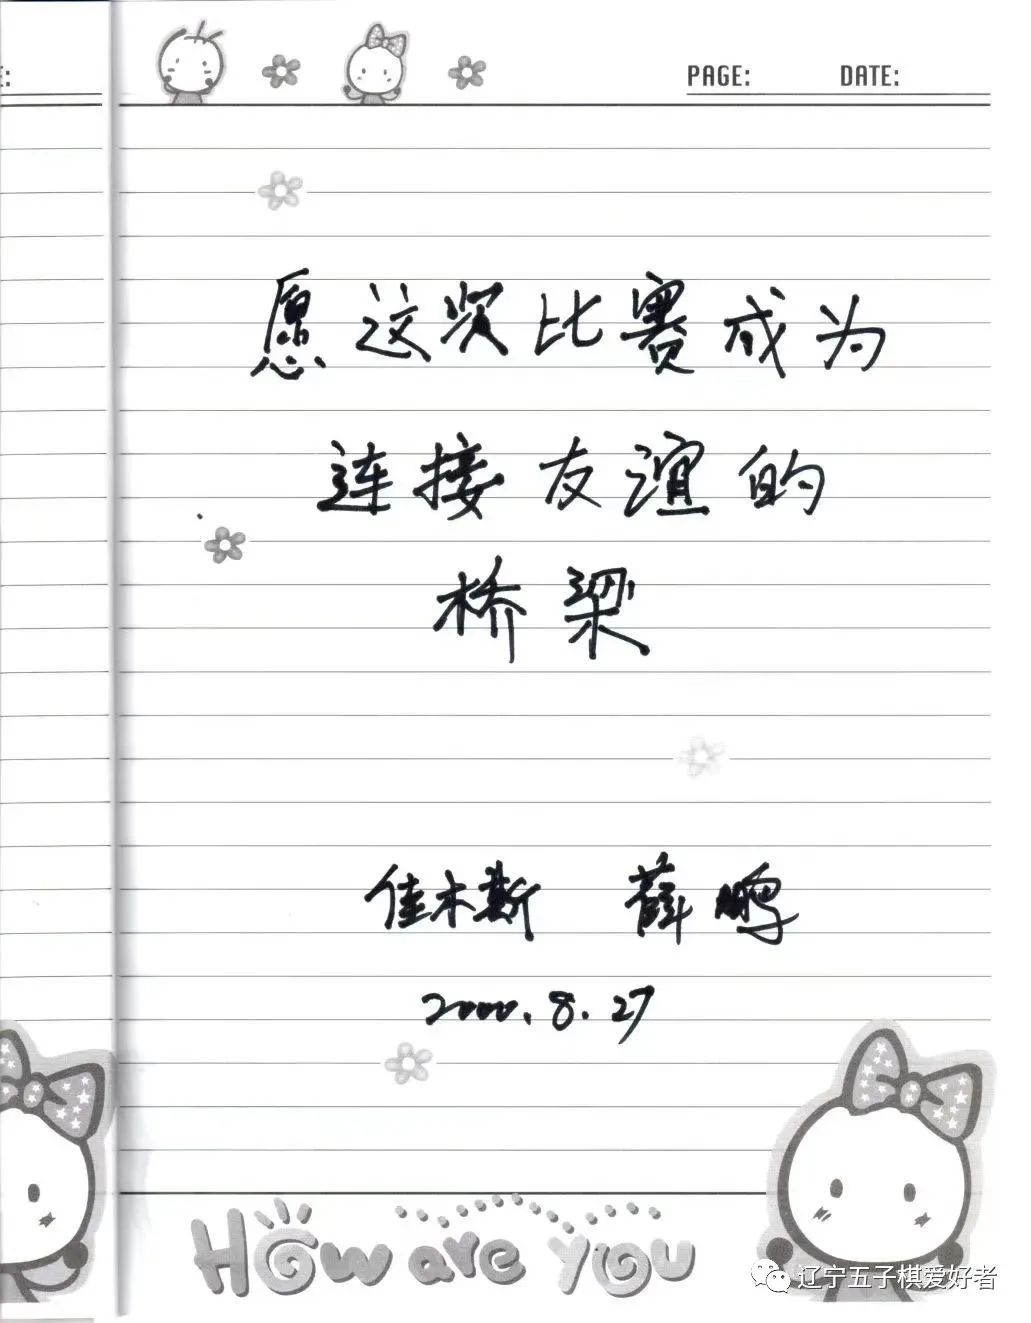 PAGE: DATE:
愿这次比赛成为
连接友谊的
桥梁
佳木斯 薛鹏
2000.8.27
How are you
辽宁五子棋爱好者